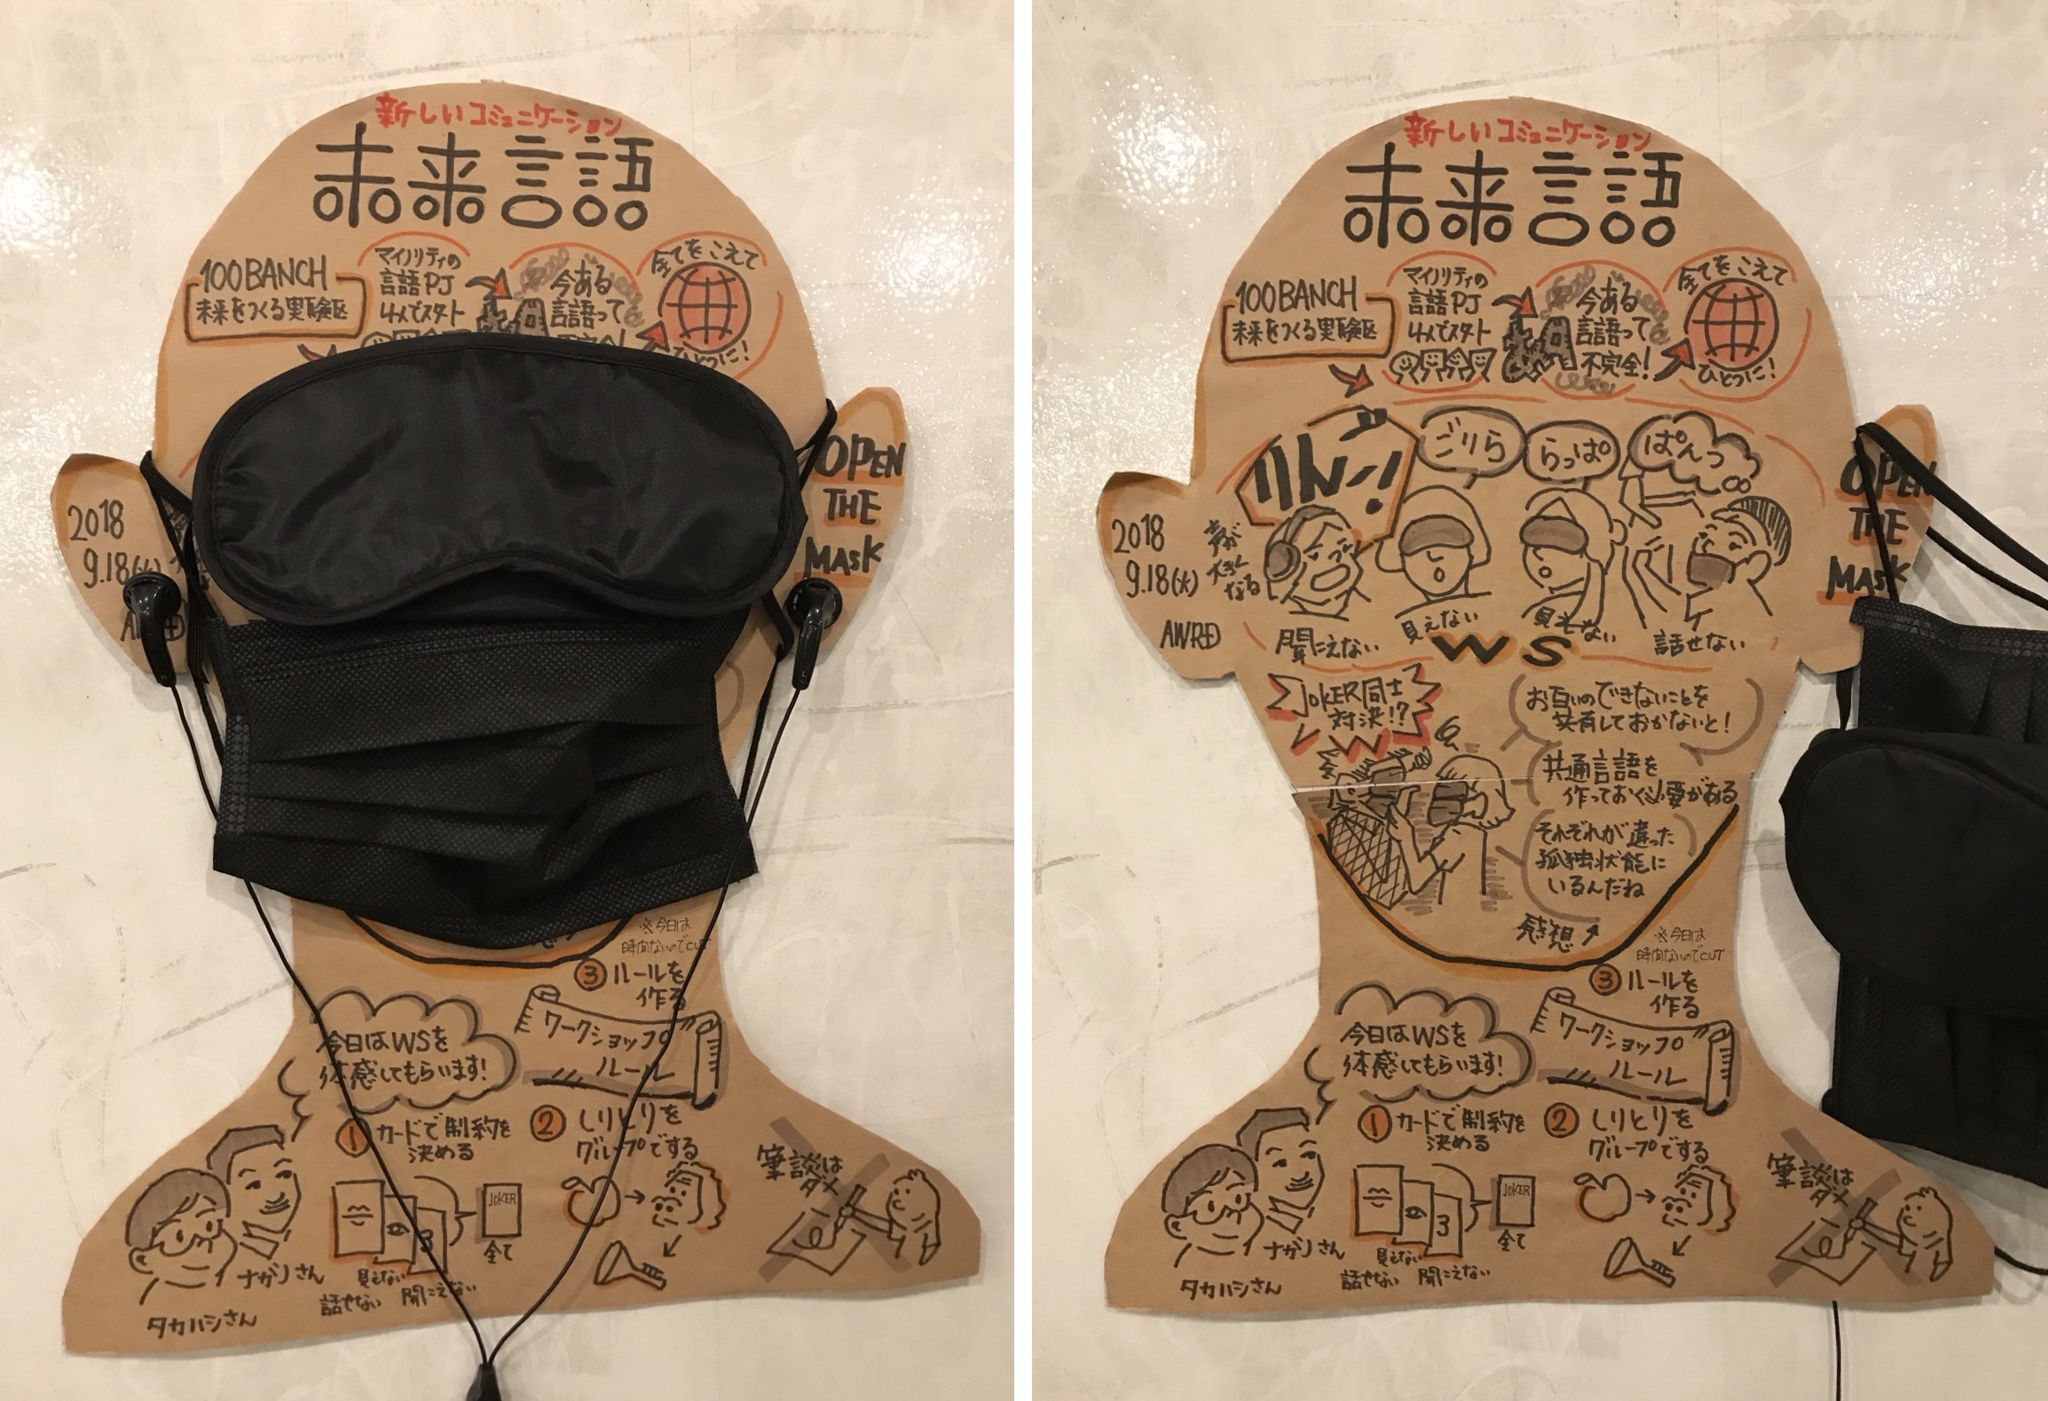 新しいコミュニケーション
未来言語
100BANCH
未来をつくる実験区
マイノリティの
言語PJ
4人でスタート
今ある
言語って
全てをこえて
ひとつに!
OPEN
THE
MASK
2018
9.18(火)
※今日は
時間ないのでCUT
③ルールを
作る
ワークショップ
ルール
今日はWSを
体感してもらいます!
①カードで制約を
決める
②しりとりを
グループでする
筆談は
ダメ
JOKER
全て
3
見えない
話せない 聞こえない
ナガノさん
タカハシさん
新しいコミュニケーション
未来言語
100BANCH
未来をつくる実験区
マイノリティの
言語PJ
4人でスタート
今ある
言語って
不完全!
全てをこえて
ひとつに!
りんご!
ごりら
らっぱ
ぱんつ
OPEN
THE
MASK
2018
9.18(火)
AWRD
声が
大きく
なる
聞こえない
見えない
見えない
話せない
WS
JOKER同士
対決!?
お互いのできないことを
共有しておかないと!
共通言語を
作っておく必要がある
それぞれが違った
孤独状態に
いるんだね
感想
※今日は
時間ないのでCUT
③ルールを
作る
ワークショップ
ルール
今日はWSを
体感してもらいます!
①カードで制約を
決める
②しりとりを
グループでする
筆談は
ダメ
JOKER
全て
3
見えない
話せない 聞こえない
ナガノさん
タカハシさん